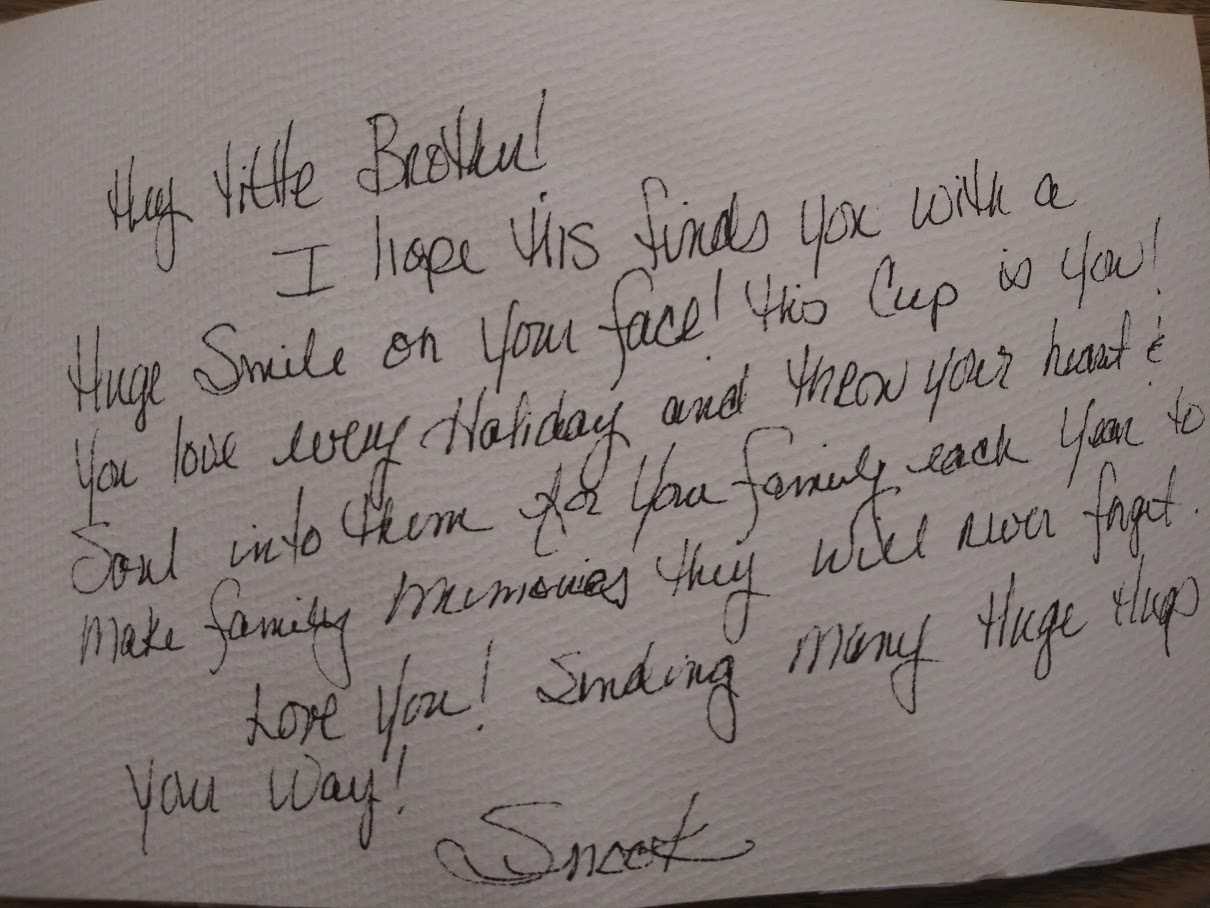 Hey Little Brother!
I hope this finds you with a
Huge Smile on your face! This Cup is you!
You love every Holiday and throw your heart &
Soul into them for your family each year to
make family memories they will never forget.
Love You! Sending many Huge Hugs
your way!
Snook